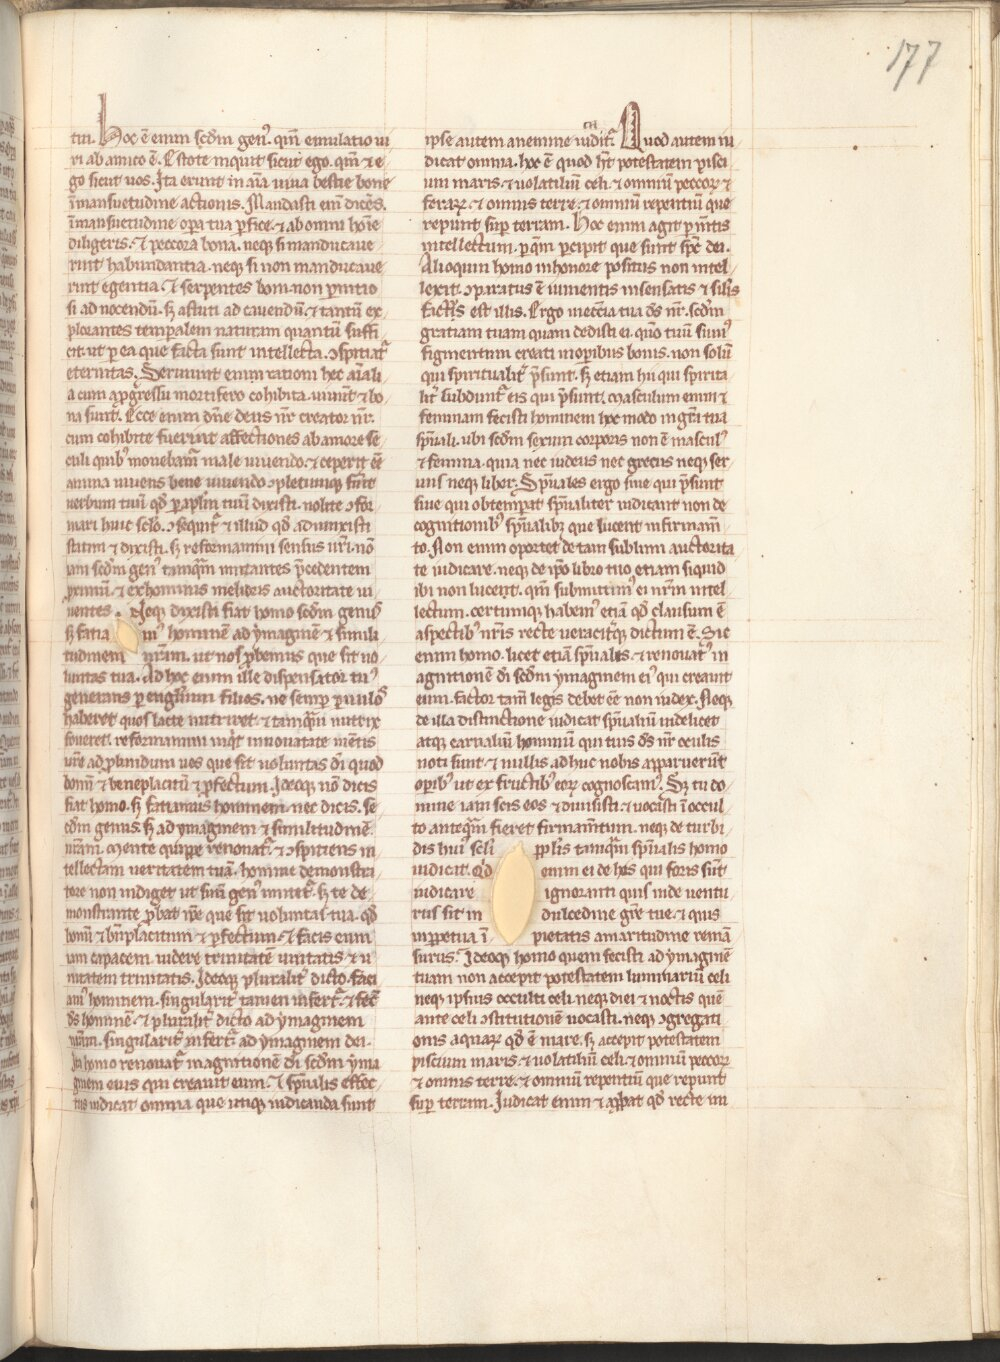 177
tui. Hoc ē enim scd̄m gen᷒. qm̄ emulatio ui
ri ab amico ē. Estote inquit sicut ego. qm̄ ⁊ e
go sicut uos. Ita erunt in aīa uiua bestie bone
ī mansuetudine actionis. Mandasti eni᷒ dicēs.
ī mansuetudine oꝑa tua ꝑfice. ⁊ ab omni hoīe
diligeris. ⁊ peccora bona. neqꝫ si manducaue
rint habundantia. neqꝫ si non manducaue
rint egentia. ⁊ serpentes boni. non ꝑnitio
si ad nocendū. sꝫ astuti ad cauendū. ⁊ tantū ex
plorantes temporalem naturam quantū suffi
cit. ut ꝑ ea que facta sunt intellecta. ꝯspitiat᷑
eternitas. Seruiunt enim rationi hec aīali
a cum a ꝓgressu mortifero cohibita uiuūt ⁊ bo
na sunt. Ecce enim dn̄e deus nr̄ creator nr̄.
cum cohibite fuerint affectiones ab amore se
culi quib᷒ moriebamur male uiuendo. ⁊ ceperit eē
anima uiuens bene uiuendo. ꝯpletumqꝫ fuerit
uerbum tuū qd̄ ꝑ aplm̄ tuū dixisti. nolite ꝯfor
mari huic sclo. ꝯsequit᷑ ⁊ illud qd̄ adiunxisti
statim ⁊ dixisti. sꝫ reformamini sensus uri. nō
iam scd̄m gen᷒ tamqm̄ imitantes p̄cedentem
primū. ⁊ ex hominis melioris auctoritate ui
uentes. Neqꝫ dixisti fiat homo scd̄m genus
sꝫ facia m᷒ hominē ad ymaginē ⁊ simili
tudinem nr̄am. ut nos ꝓbemus que sit uo
luntas tua. Ad hoc enim ille dispensator tu᷒
generans ꝑ eugl̄ium filios. ne semꝑ ꝑuulos
haberet quos lacte nutriret. ⁊ tamqm̄ nutrix
foueret. reformamini inqt innouitate mentis
ure ad ꝓbandum uos que sit uoluntas di quod
bonū ⁊ beneplacitū ⁊ ꝑfectum. Ideoqꝫ nō dicis
fiat homo. sꝫ faciamus hominem. nec dicis. se
cdm genus. sꝫ ad ymaginem ⁊ similitudinē
nr̄am. Mente quippe renouat᷒. ⁊ ꝯspitiens in
tellectam ueritatem tuā. homine demonstra
tore non indiget ut suū gen᷒ imitet᷑. sꝫ te de
monstrante ꝓbat ipse que sit uoluntas tua. qd̄
bonū ⁊ bn̄placitum ⁊ ꝑfectum. ⁊ facis eum
iam capacem uidere trinitatē unitatis ⁊ u
nitatem trinitatis. Ideoqꝫ pluralit᷑ dicto. faci
am᷒ hominem. singularit᷑ tamen infert᷑. ⁊ fec̄
ds̄ hominē. ⁊ pluralit᷑ dicto ad ymaginem
nr̄am. singularit᷑ infert᷑ ad ymaginem dei.
Ita homo renouat᷑ in agnitionē di scdm̄ yma
ginem eius qui creauit eum. ⁊ spūalis effec
tus iudicat omnia que utiqꝫ iudicanda sunt
ipse autem a nemine iudicat᷑. Quod autem iu
dicat omnia. hoc ē quod ht̄ potestatem pisci
um maris. ⁊ uolatiliū celi. ⁊ omniū peccorꝝ ⁊
ferarꝝ. ⁊ omnis terre. ⁊ omniū repentiū que
repunt suꝑ terram. Hoc enim agit ꝑ mentis
intellectum. ꝑ qm̄ percipit que sunt spc̄ dei.
Alioquin homo in honore positus non intel
lexit. ꝯparatus ē iumentis insensatis ⁊ silis
factus est illis. Ergo in eccl̄ia tua ds̄ nr̄. scdm̄
gratiam tuam quam dedisti ei. qm̄ tuū sum᷒
figmentum creati in oꝑibus bonis. non solū
qui spiritualit᷑ p̄sunt. sꝫ etiam hii qui spirita
lit᷑ subdunt᷑ eis qui p̄sunt. Masculum enim ⁊
feminam fecisti hominem hoc modo in gr̄a tua
spūali. ubi scdm̄ sexum corporis non ē mascul᷒
⁊ femina. quia nec iudeus nec grecus neqꝫ ser
uus neqꝫ liber. Spūales ergo siue qui p̄sunt
siue qui obtemꝑat spūaliter iudicant non de
cognitionib᷒ spūalibꝫ que lucent in firmamē
to. Non enim oportet de tam sublimi auctorita
te iudicare. neqꝫ de ipso libro tuo etiam siquid
ibi non lucent. qm̄ submittim᷒ ei nr̄m intel
lectum. certumqꝫ habem᷒ etiā qd̄ clausum ē
aspectib᷒ nr̄is recte ueracit᷑qꝫ dictum ē. Sic
enim homo. licet etiā spūalis. ⁊ renouat᷒ in
agnitionē di scdm̄ ymaginem ei᷒ qui creauit
eum. factor tam̄ legis debet eē non iudex. Neqꝫ
de illa distinctione iudicat spūaliū uidelicet
atqꝫ carnaliū hominū qui tuis ds̄ nr̄ oculis
noti sunt ⁊ nullis adhuc nobis apparuerūt
oꝑib᷒ ut ex fructib᷒ eorꝝ cognoscam᷒. Sꝫ tu do
mine iam scis eos ⁊ diuisisti. ⁊ uocasti ī occul
to anteqm̄ fieret firmam̄tum. neqꝫ de turbi
dis hui᷒ scl̄i ppl̄is tamqm̄ spūalis homo
iudicat. Qd̄ enim ei de hiis qui foris sūt
iudicare ignoranti quis inde uentu
rus sit in dulcedine gr̄e tue. ⁊ quis
in ꝑpetua ī pietatis amaritudine remā
surus. Ideoqꝫ homo quem fecisti ad ymaginē
tuam non accepit potestatem luminariū celi
neqꝫ ipsius occulti celi. neqꝫ diei ⁊ noctis quē
ante celi ꝯstitutionē uocasti. neqꝫ ꝯgregati
onis aquarꝝ qd̄ ē mare. sꝫ accepit potestatem
piscium maris. ⁊ uolatiliū celi. ⁊ omniū peccorꝝ
⁊ omnis terre. ⁊ omniū repentiū que repunt
suꝑ terram. Iudicat enim ⁊ apꝓbat qd̄ recte im